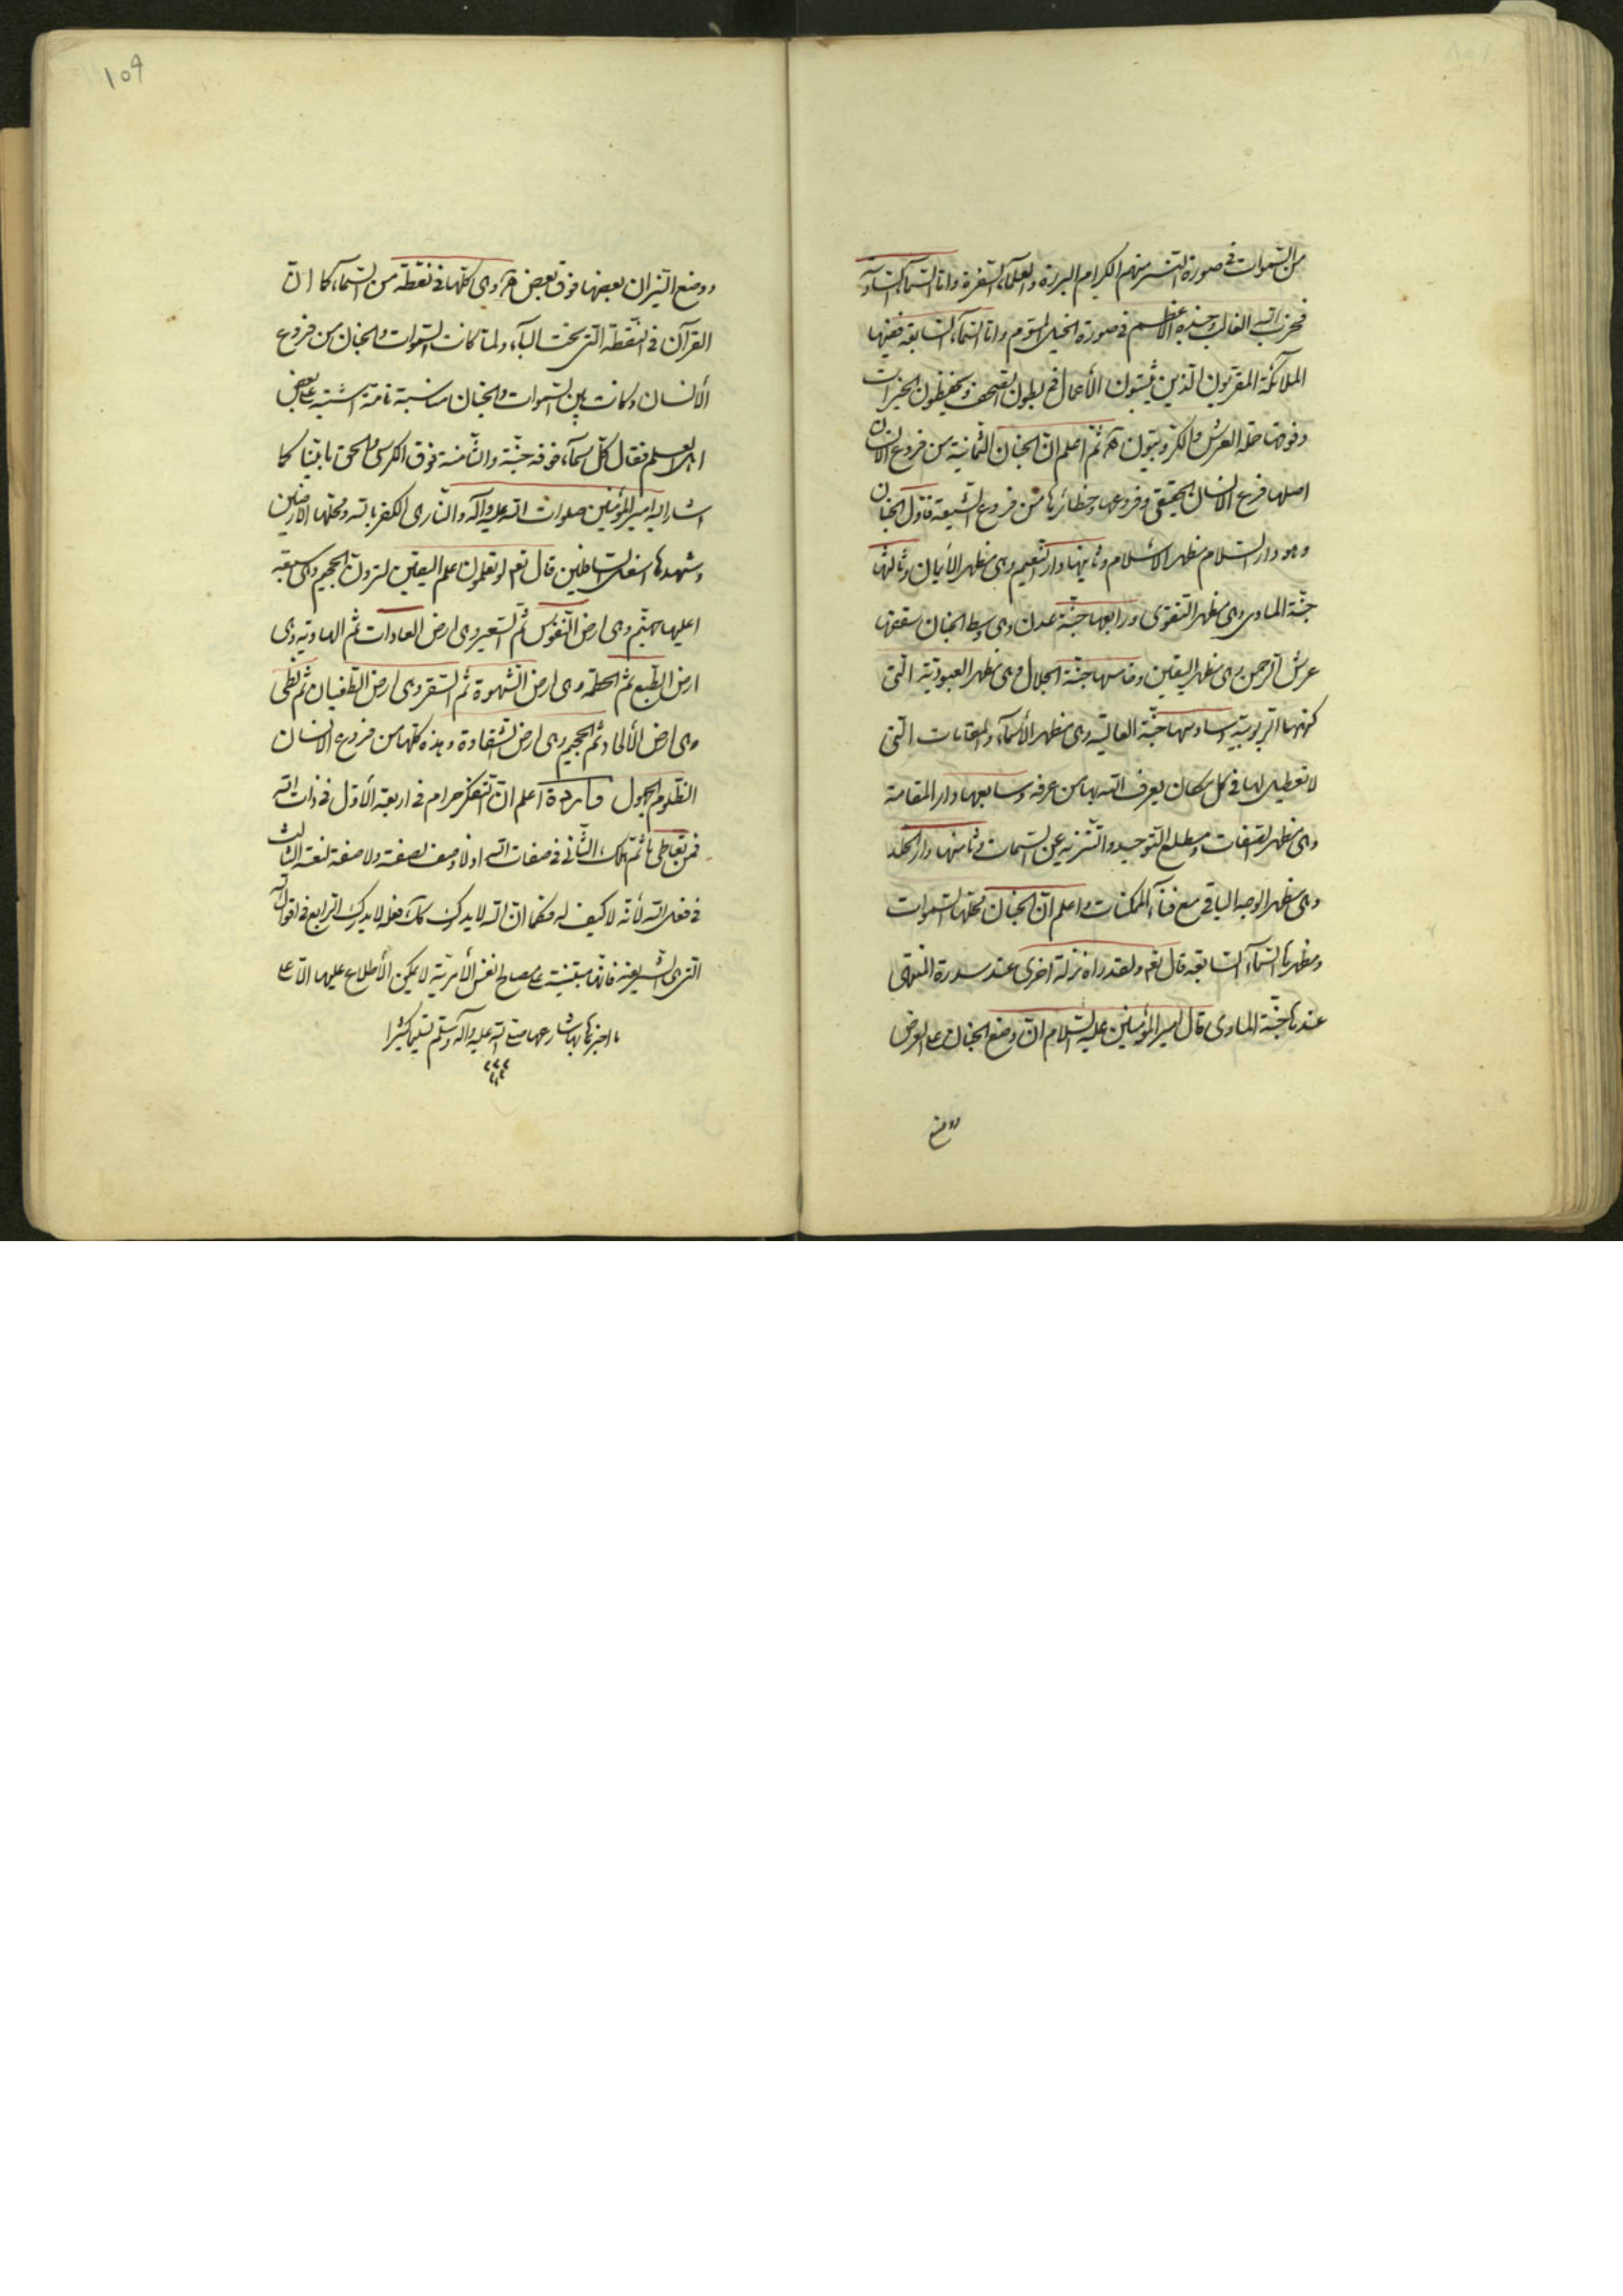 من السموات فی صورة النسر منهم الکرام البررة والعلمآء السفرة واما السمآء السادسة
فحزب الله الغالب وجنده الأعظم فی صورة الخیل المسوّم واما السمآء السابعة ففیها
الملائکة المقربون الذین یثبتون الأعمال فی بطون الصحف ویحفظون الخیرات
وفوقها حملة العرش والکروبیون ثمّ اعلم انّ الجنان الثمانیة من فروع الانسان
اصلها فرع الانسان الحقیقی وفروعها وحظائرها من فروع الشیعة فاول الجنان
وهو دار السلام مظهر الاسلام وثانیها دار النعیم وهی مظهر الأیمان وثالثها
جنّة الماوی وهی مظهر التقوی ورابعها جنّة عدن وهی وسط الجنان سقفها
عرش الرحمن وهی مظهر الیقین وخامسها جنّة الجلال وهی مظهر العبودیّة الّتی
کنهها الربوبیّة وسادسها جنّة العالیة وهی مظهر الأسمآء والمقامات الّتی
لا تعطیل لها فی کل مکان یعرف الله بها من عرفه وسابعها دار المقامة
وهی مظهر الصفات ومطلع التوحید والتنزیه عن السمات وثامنها دار الخلد
وهی مظهر الوجه الباقی مع فنآء الممکنات واعلم انّ الجنان محلها السموات
ومظهرها السمآء السابعة قال تعم ولقد راه نزلة اخری عند سدرة المنتهی
عندها جنّة الماوی قال امیر المؤمنین علیه السّلام انّ وضع الجنان علی العرض
ووضع
ووضع النیران بعضها فوق بعض وهی کلّها فی نقطة من السمآء کما انّ
القرآن فی النّقطة الّتی تحت البآء ولمّا کانت السموات والجنان من فروع
الأنسان وکانت بین السموات والجنان مناسبة تامّة اشتبه علی بعض
اهل العلم فقال کلّ سمآء فوقه جنّة والثّامنة فوق الکرسی والحق ما بیّنا کما
اشار الیه امیر المؤمنین صلوات الله علیه وآله والنّار هی الکفر بالله ومحلها الأرضین
ومشهدها اسفل السافلین قال تعم لو تعلمون علم الیقین لترونّ الجحیم وهی سبعة
اعلیها جهنّم وهی ارض النّفوس ثمّ السّعیر وهی ارض العادات ثمّ الهاویة وهی
ارض الطّبع ثمّ الحطمة وهی ارض الشّهوة ثمّ السّقر وهی ارض الطّغیان ثمّ لظی
وهی ارض الألحاد ثمّ الجحیم وهی ارض الشّقاوة وهذه کلّها من فروع الانسان
الظّلوم الجهول فائدة اعلم انّ التّفکّر حرام فی اربعة الأوّل فی ذات الله
فمن تعاطی ما ثمّ هلک، الثّانی فی صفات الله اذ لا وصف لصفته ولا صفة لنعته الثالث
فی فعل الله لأنّه لا کیف له فکما انّ الله لا یدرک کذلک فعله لا یدرک الرابع فی اقوال الله
الّتی هی الشّریعة فانّها مبتنیة علی مصالح النفس الأمریّة لا یمکن الأطلاع علیها الّا علی
ما اخبرنا بها شارعها صلی الله علیه وآله وسلّم تسلیما کثیرا
١٥٩